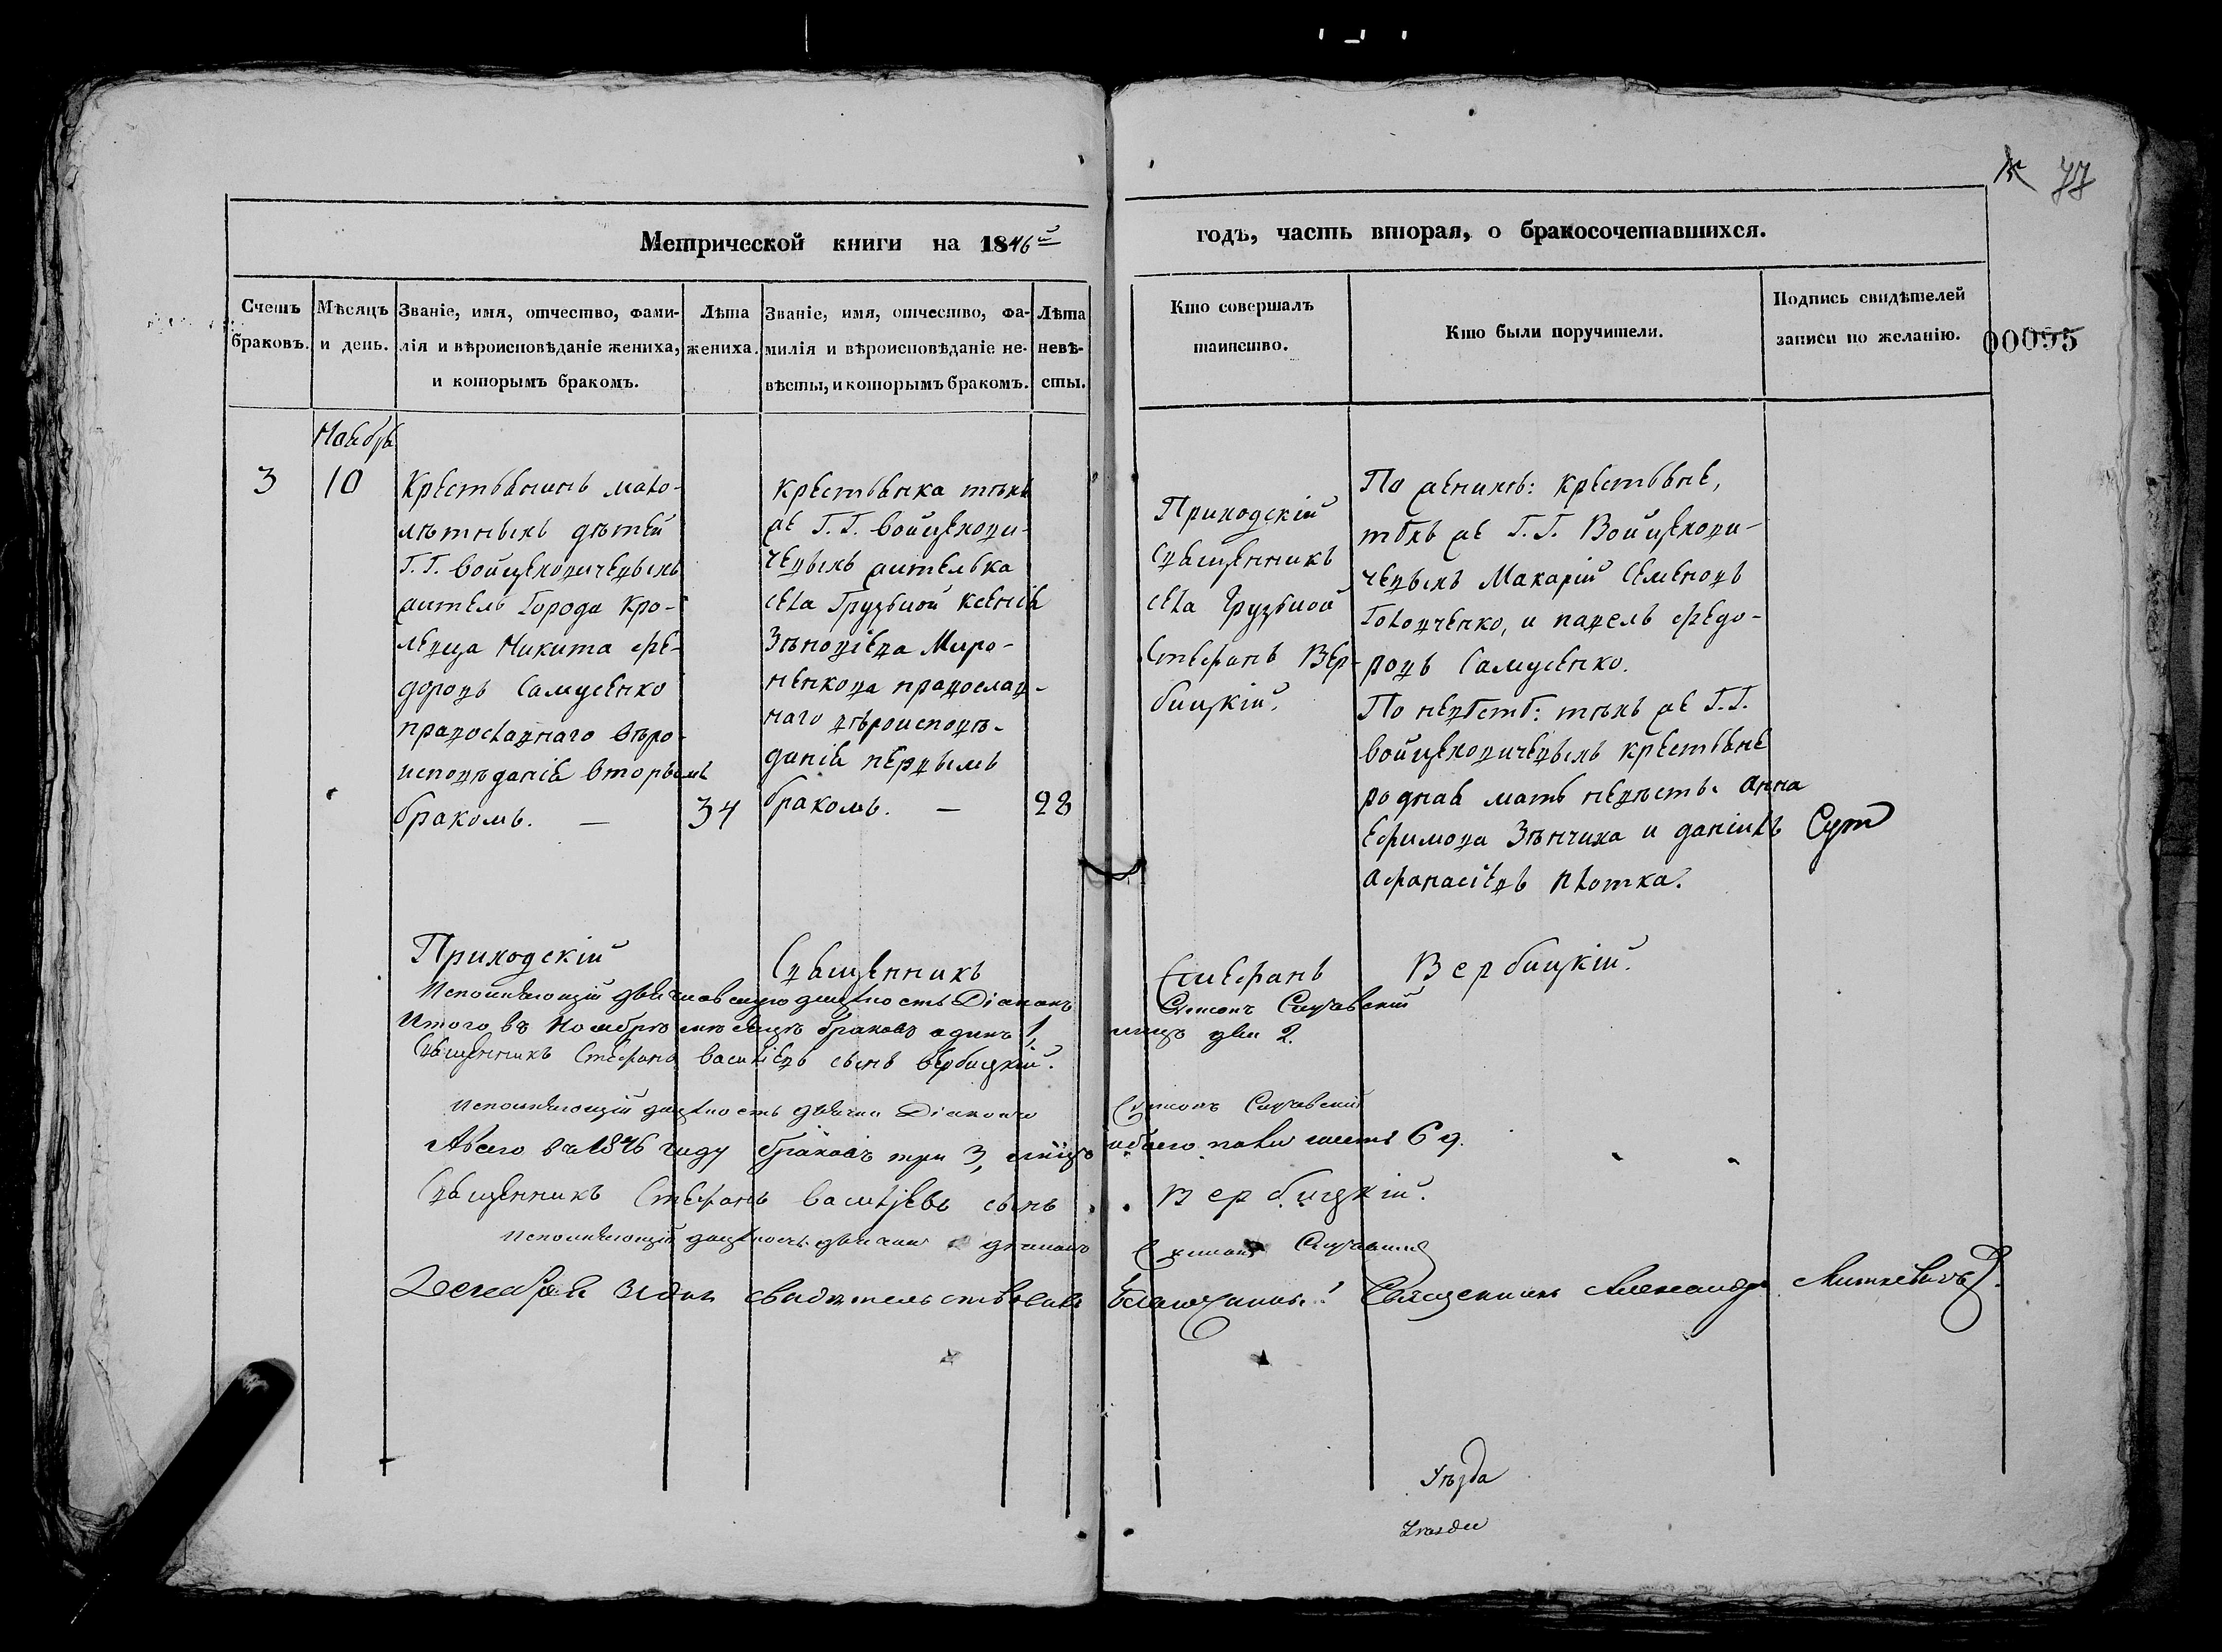 77
Метрической книги на 1846й
годъ, часть вторая, о бракосочетавшихся.
Счетъ браковъ.
Мѣсяцъ и день.
Званіе, имя, отчество, фами-
лія и вѣроисповѣданіе жениха,
и которымъ бракомъ.
Лѣта
жениха.
Званіе, имя, отчество, фа-
милія и вѣроисповѣданіе не-
вѣсты, и которымъ бракомъ.
Лѣта
невѣ-
сты.
Кто совершалъ
таинство.
Кто были поручители.
Подпись свидѣтелей
записи по желанію.
00095
Ноября
3
10
Крестьянинъ мало-
лѣтныхъ дѣтей
Г.Г. Войцеховичевыхъ
житель Города Кро-
левца Никита Фе-
доровъ Самусенко
православнаго вѣро-
исповѣданія вторымъ
бракомъ. —
34
крестьянка тѣхъ
же Г.Г. Войцехови-
чевыхъ жителька
села Грузской Ксенія
Зѣновіева Миро-
ненкова православ-
наго вѣроисповѣ-
данія первымъ
бракомъ. —
28
Приходскій
Священникъ
села Грузской
Стефанъ Вер-
бицкій.
По женихѣ: крестьяне,
тѣхъ же Г.Г. Войцехови-
чевыхъ Макарій Семеновъ
Головченко, и павелъ Федо-
ровъ Самусенко.
По невѣстѣ: тѣхъ же Г.Г.
Войцеховичевыхъ крестьяне
родная мать невѣсты Анна
Ефимова Зѣнчиха и даніилъ
Афанасіевъ плотка.
Приходскій Священникъ Стефанъ Вербицкій.
Исполняющій дьячковскую должность Діаконъ
Итого въ Ноябрѣ мѣсяцѣ браковъ одинъ 1, лицъ два 2.
Священникъ Стефанъ Василіевъ сынъ Вербицкій.
Исполняющій должность дьячка Діаконъ
Авсего въ 1846 году браковъ три 3, лицъ обоего пола шесть 6 д.
Священникъ Стефанъ Василіевъ сынъ Вербицкій.
Исполняющій должность дьячка діаконъ
Декабря 31 дня свидѣтельствовалъ Благочинный Священникъ Александръ
Уѣзда